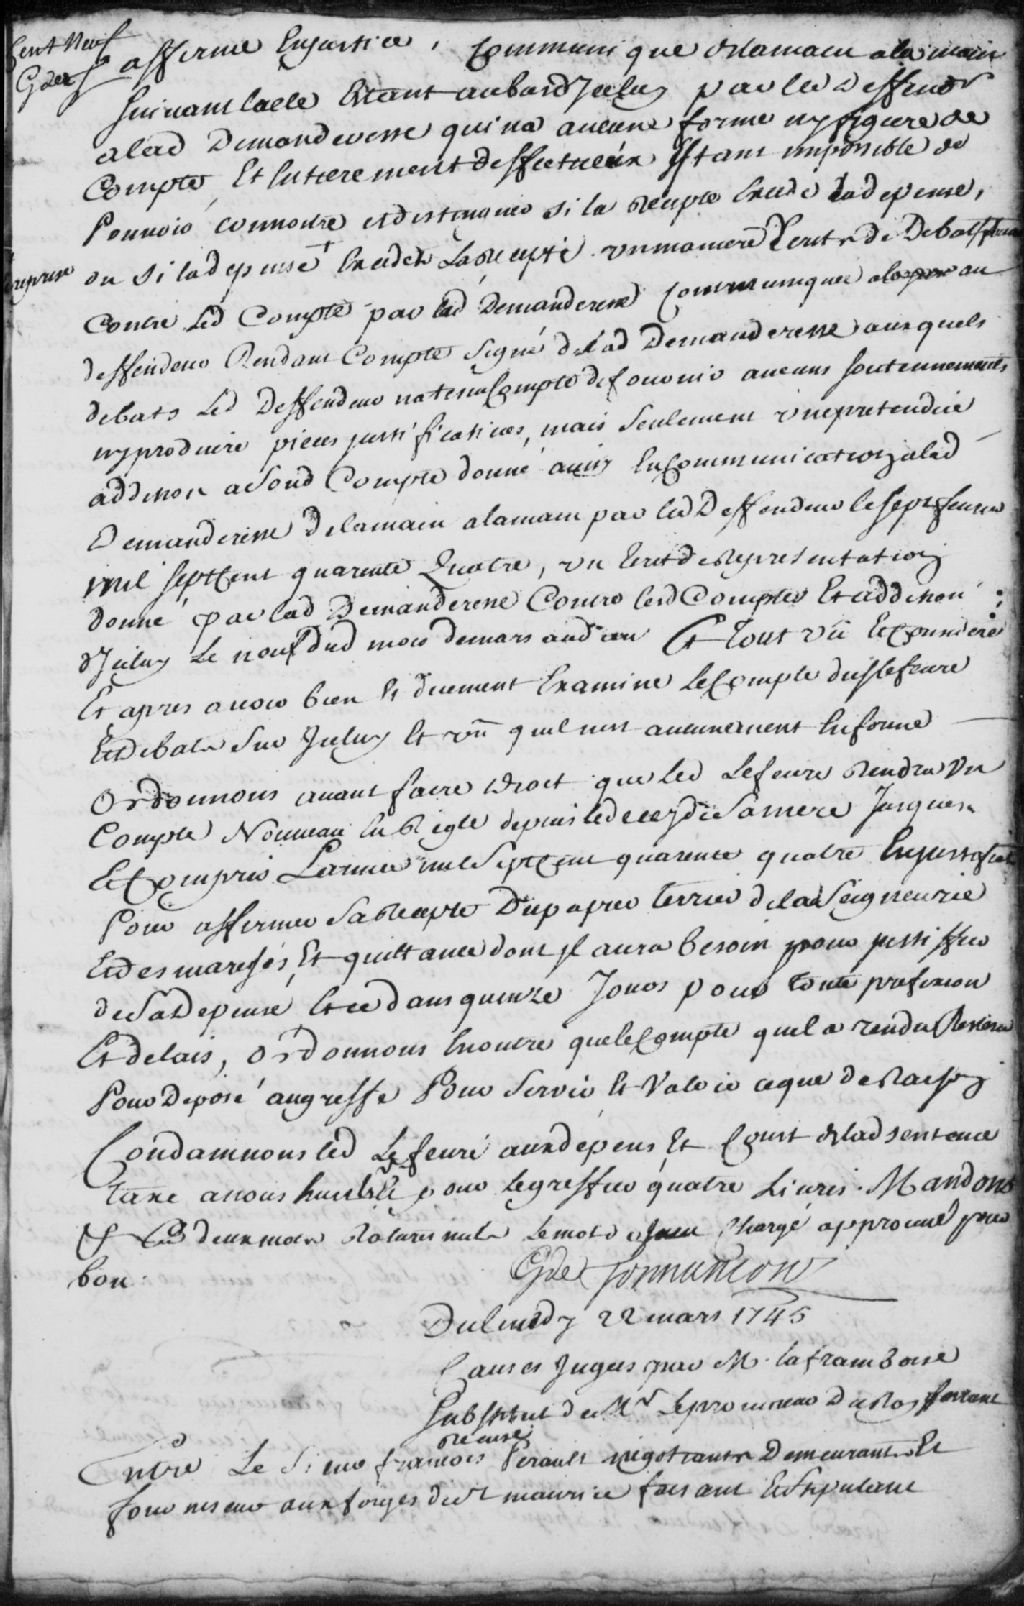 Cent Neuf
Gdef
affirmé En justice, Communiqué de lamain a la main
suivant lacte Etant aubas d'Jceluy par led Deffendr
alad Demanderesse qui na aucune forme ny figure de
Compte, Et Entierement deffectueux Estant impossible de
Pouvoir connoitre et distinguer si la recepte Excede la depense,
ou si la depense + Excede La recepte un memoire D'ecrits de Debats
reprise
Contre Led Compte par lad Demanderesse Communiqué au
deffendeur Rendant Compte Signé de lad Demanderesse auxquels
debats Led Deffendeur na tenu Compte de fournir aucuns soutennements
ny produire pieces justificatives, mais seulement une pretendue
addition a Sond Compte donné aussy En Communication alad
Demanderesse de lamain a lamain par led Deffendeur le sept fevrier
mil sept Cent quarente Quatre, un Ecrit de Representation
donné par lad Demanderesse Contre lesd Comptes Et addition
d'Jceluy Le neuf dud mois de mars aud an Et Tout vû Et Consideré
Et apres avoir bien Et duement Examiné Le Compte dud Lefevre
Et debats Sur Jceluy Et vû quil nest aucunement En forme
Ordonnons avant faire Droit que Led Lefevre Rendra Un
Compte Nouveau En Regle depuis le deceds de Sa mere Jusques
Et Compris L'année mil Sept Cent quarente quatre
Pour affirmer Sa Recepte D'un papier terrier de la Seigneurie
Et des marchés, Et quittance dont Jl aura besoin pour justiffier
de Sa Depense Et ce dans quinze Jours pour toute prefixion
Et delais, ordonnons En outre que le Compte quil a rendu Restera
Pour Deposé au greffe Pour Servir Et Valoir ce que de Raison
Condamnons led Lefevre aux depens Et Cout de lad sentence
taxé a nous huit pour le greffier quatre Livres. Mandons
& Ces deux mots Raturés nuls Le mot Chargé approuvé pour
bon.
Du lundy 22 mars 1745
Causes Jugées par M. laframboise
Substitut de Mr Le procureur du Roy
recusé
Entre Le Sieur francois Perault negotiant Demeurant Et
fournisseur aux forges de St maurice faisant Et Stipulant